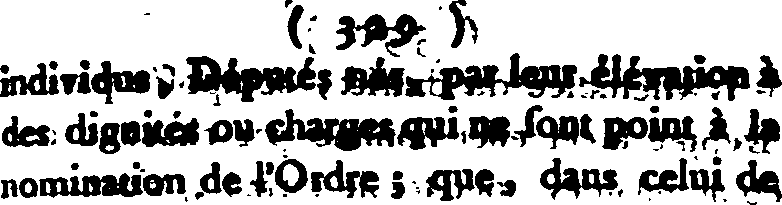 ( 309 )
individus, Députés nés, par leur élévation à
des dignités ou charges qui ne ſont point à la
nomination de l'Ordre ; que, dans celui de